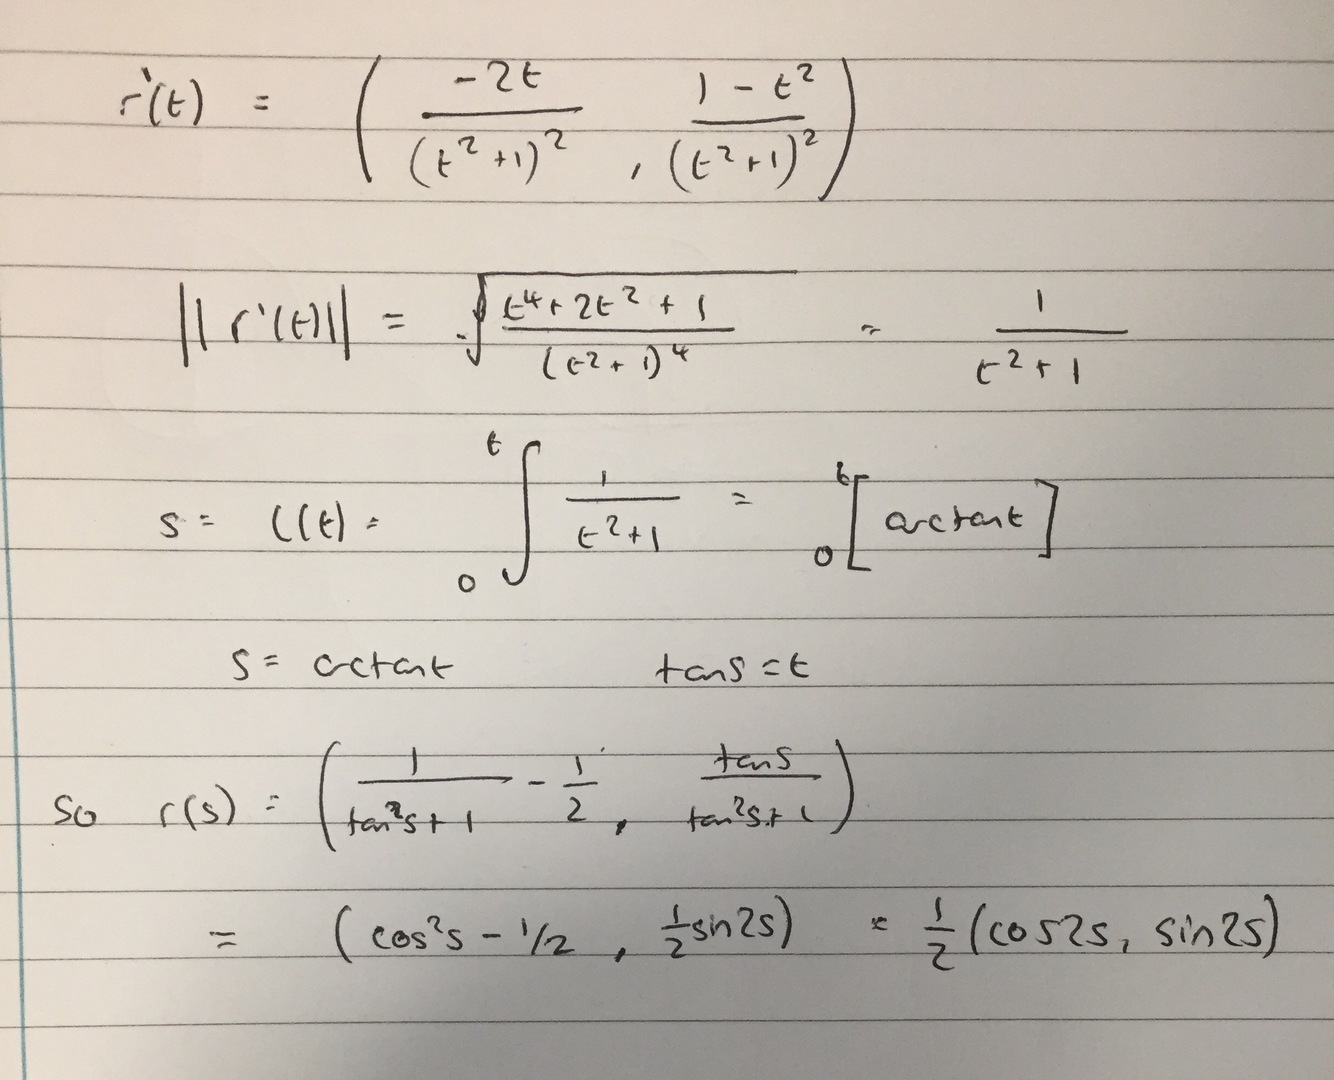 r'(t) = ( -2t / (t²+1)² , 1 - t² / (t²+1)² )
||r'(t)|| = √( t⁴ + 2t² + 1 / (t²+1)⁴ ) = 1 / t²+1
s = l(t) = ∫₀ᵗ 1 / t²+1 = ₀ᵗ[ arctant ]
s = arctant tans = t
so r(s) = ( 1 / tan²s + 1 - 1/2 , tans / tan²s + 1 )
= ( cos²s - 1/2 , 1/2 sin2s ) = 1/2 (cos2s, sin2s)